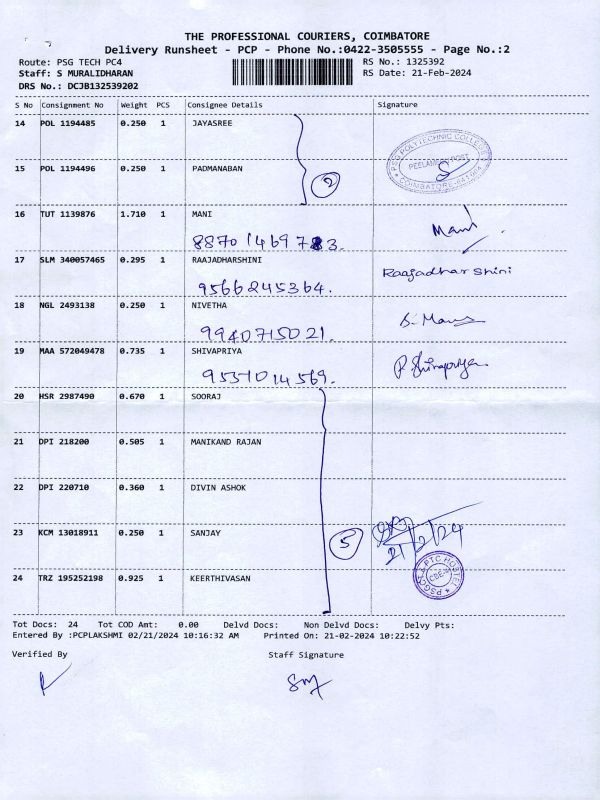 THE PROFESSIONAL COURIERS, COIMBATORE
Delivery Runsheet - PCP - Phone No.:0422-3505555 - Page No.:2
Route: PSG TECH PC4
RS No.: 1325392
Staff: S MURALIDHARAN
RS Date: 21-Feb-2024
DRS No.: DCJB132539202
S No Consignment No Weight PCS Consignee Details Signature
14 POL 1194485 0.250 1 JAYASREE
PSG POLYTECHNIC COLLEGE
PEELAMEDU POST
COIMBATORE-641004
15 POL 1194496 0.250 1 PADMANABAN
2
16 TUT 1139876 1.710 1 MANI
Mani
17 SLM 340057465 0.295 1 RAAJADHARSHINI
Raajadharshini
9566245364.
18 NGL 2493138 0.250 1 NIVETHA
9940715021.
19 MAA 572049478 0.735 1 SHIVAPRIYA
P. Shivapriya
20 HSR 2987490 0.670 1 SOORAJ
21 DPI 218200 0.505 1 MANIKAND RAJAN
22 DPI 220710 0.360 1 DIVIN ASHOK
23 KCM 13018911 0.250 1 SANJAY
5
21/2/24
24 TRZ 195252198 0.925 1 KEERTHIVASAN
Tot Docs: 24 Tot COD Amt: 0.00 Delvd Docs: Non Delvd Docs: Delvy Pts:
Entered By :PCPLAKSHMI 02/21/2024 10:16:32 AM Printed On: 21-02-2024 10:22:52
Verified By Staff Signature